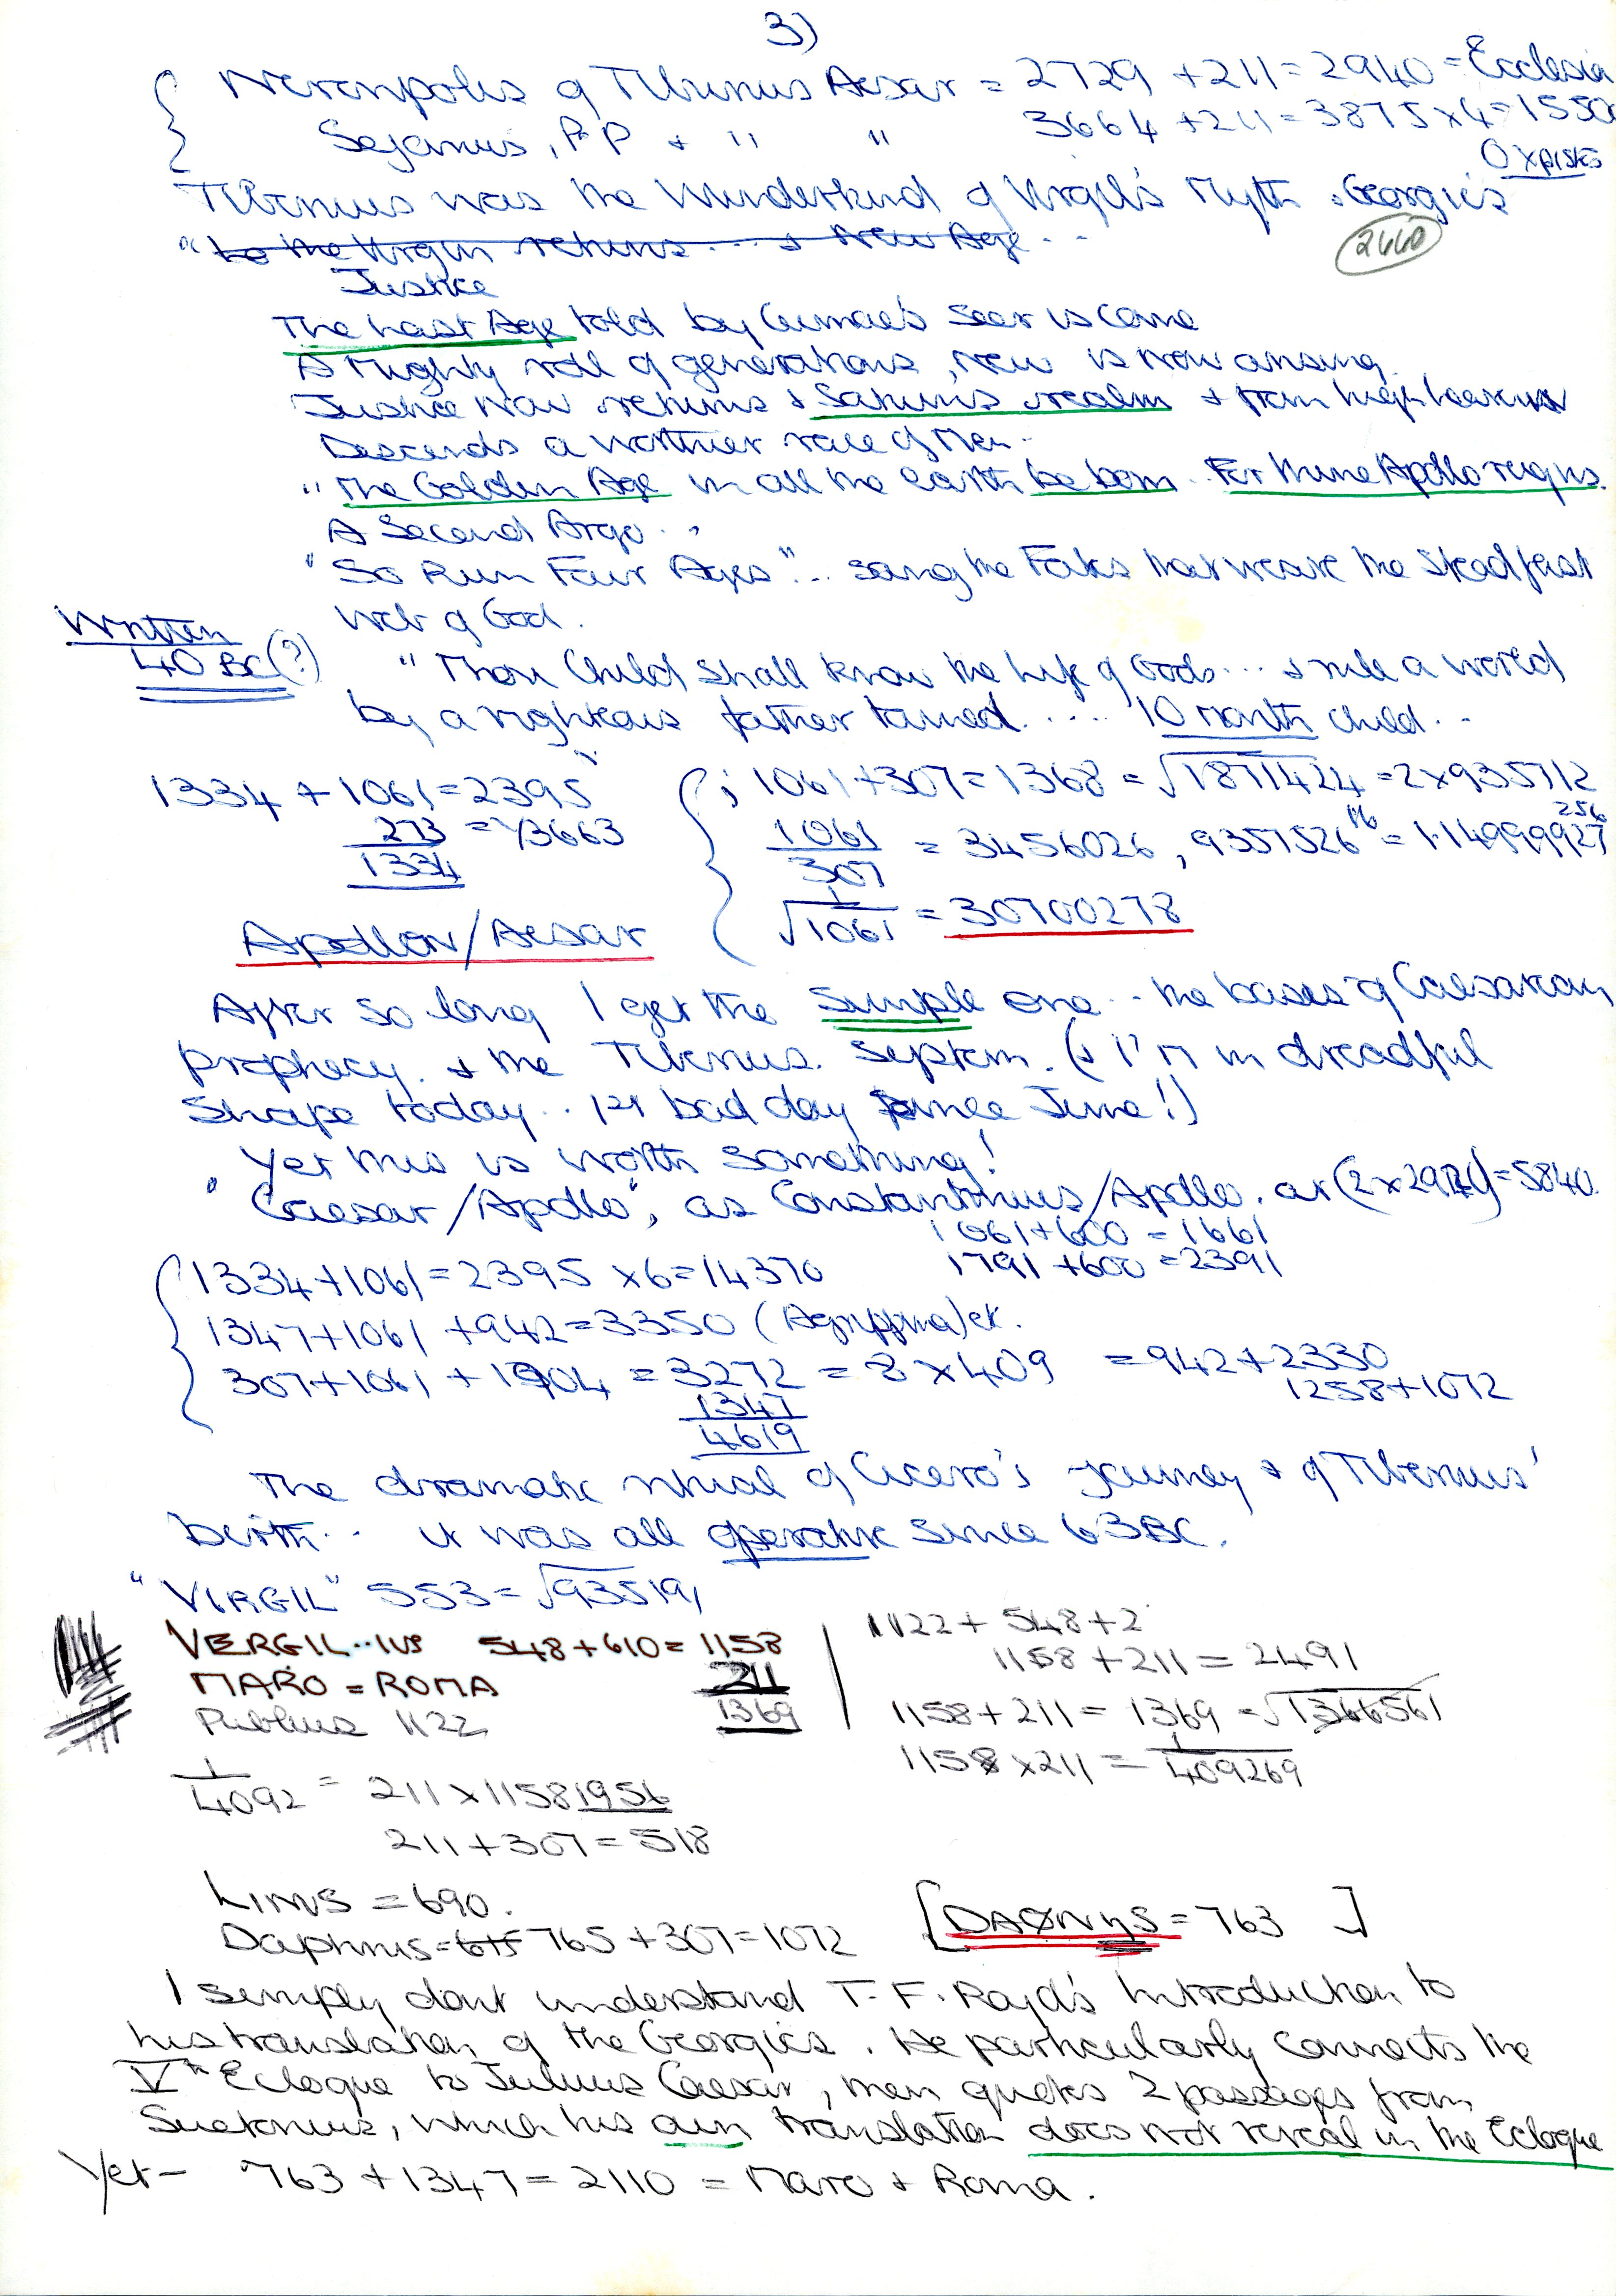 3)
Neronpolis of Tiberius Aesar = 2729 + 211 = 2940 = Ecclesia
Sejanus, PP + " " 3664 + 211 = 3875 x 4 = 1550
Tiberius was the Wunderkind of Virgil's Myth. Georgics
"to the Virgin returns... & New Age..
2660
Justice
The Last Age told by Cumae's Seer is Come
A Mighty roll of generations, new is now arising
Justice now returns & Saturns realm & from high heaven
Descends a worthier race of Men..
"The Golden Age in all the earth be born.. For thine Apollo reigns.
A Second Argo...
"So Run Fair Ages".. sang the Fates that weave the steadfast
web of God.
Written
40 BC (?)
"Thou Child shall know the Life of Gods... & rule a world
by a righteous father tamed..... 10 month child..
1334 + 1061 = 2395
273 = 1/3663
1334
; 1061 + 307 = 1368 = √1871424 = 2 x 935712
1061/307 = 3456026, 9357526^16 = 1.14999927^256
1/√1061 = 30700278
Apollon/Aesar
After so long I get the Simple one.. the bases of Caesarean
prophecy. & the Tiberius. System. (& I'm in dreadful
Shape today.. 1st bad day since June!)
Yet this is worth something!
"Caesar/Apollo", as Constantinus/Apollo. or (2 x 2920) = 5840.
1061 + 600 = 1661
1791 + 600 = 2391
1334 + 1061 = 2395 x 6 = 14370
1347 + 1061 + 942 = 3350 (Agrippina) etc.
307 + 1061 + 1904 = 3272 = 8 x 409 = 942 + 2330
1347
4619
1258 + 1072
The dramatic ritual of Cicero's journey & of Tiberius'
birth.. it was all operative since 63 BC.
"VIRGIL" 553 = √93519,
VERGIL..IUS 548 + 610 = 1158
MARO = ROMA 211
Publius 1122 1369
1122 + 548 + 2
1158 + 211 = 2491
1158 + 211 = 1369 = √1366561
1158 x 211 = 1/409269
1/4092 = 211 x 11581956
211 + 307 = 518
Linus = 690.
Daphnis = 615 765 + 307 = 1072 [DAΦNYS = 763 ]
I simply dont understand T. F. Royd's Introduction to
his translation of the Georgics. He particularly connects the
Vth Eclogue to Julius Caesar, then quotes 2 passages from
Suetonius, which his own translation does not reveal in the Eclogue
Yet - 763 + 1347 = 2110 = Maro & Roma.